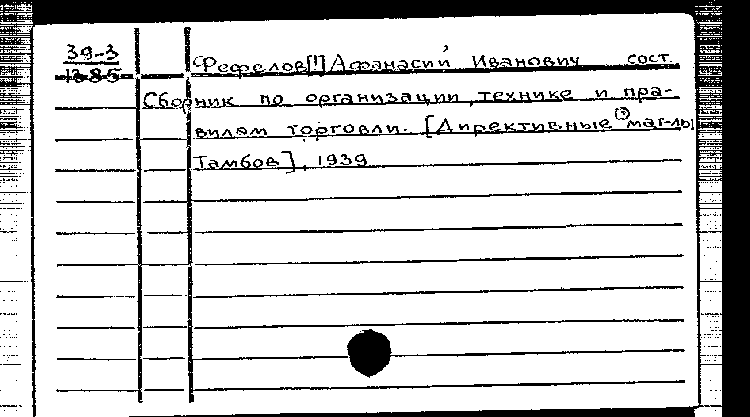 39-3
13-85
Фефелов[!] Афанасий Иванович сост.
Сборник по организации, технике и пра-
вилам торговли. [Директивные (?) мат-лы
Тамбов], 1939